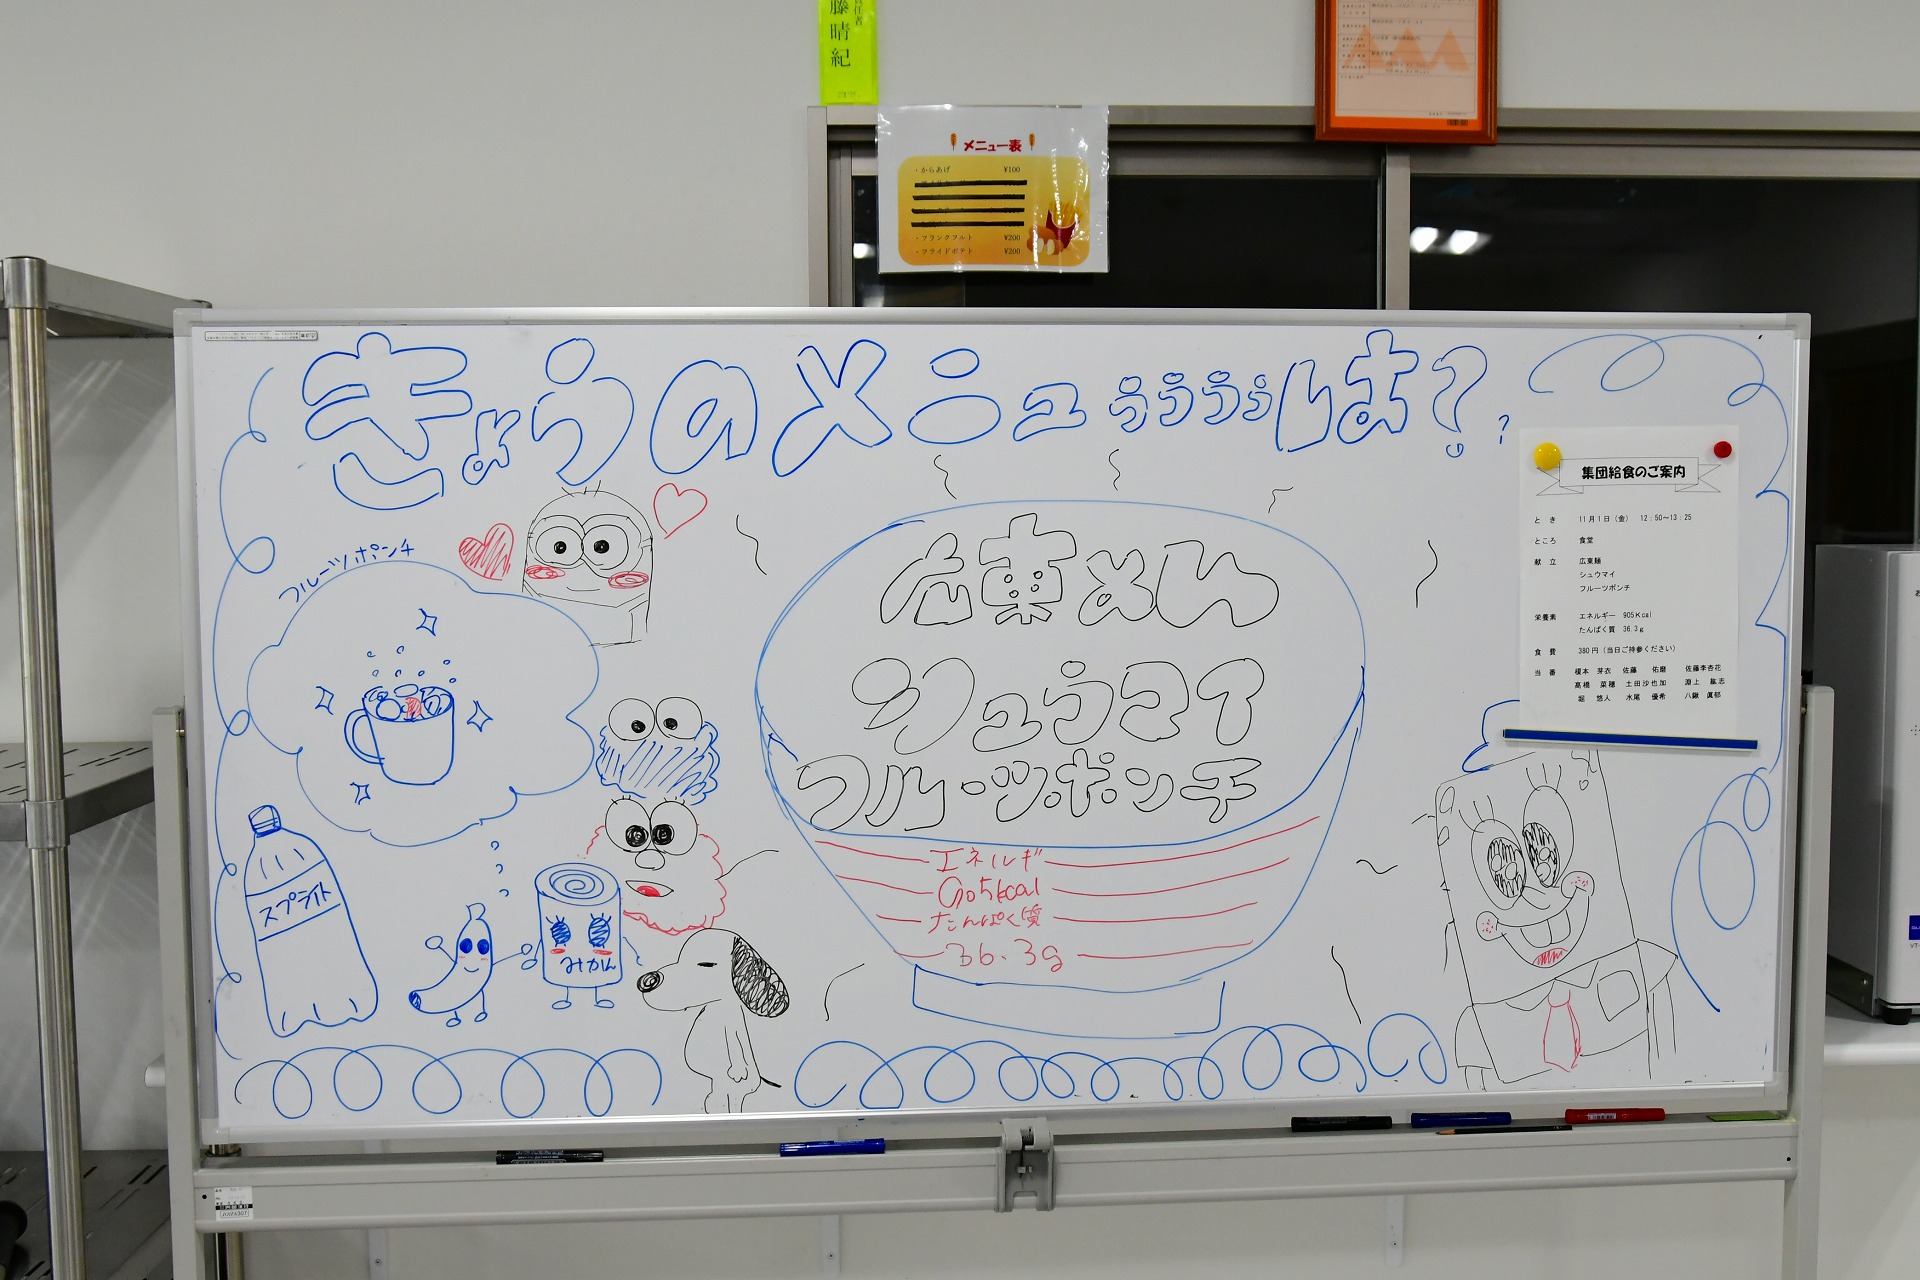 責任者
藤晴紀
メニュー表
・からあげ ¥100
・フランクフルト ¥200
・フライドポテト ¥200
きょうのメニュぅぅぅぅしは??
フルーツポンチ
広東めん
シュウマイ
フルーツポンチ
エネルギ
905kcal
たんぱく質
36.3g
スプライト
みかん
集団給食のご案内
とき 11月1日(金) 12:50～13:25
ところ 食堂
献立 広東麺
シュウマイ
フルーツポンチ
栄養素 エネルギー 905Kcal
たんぱく質 36.3g
食費 380円(当日ご持参ください)
当番 榎本 芽衣 佐藤 佑磨 佐藤李杏花
髙橋 菜穂 土田沙也加 淵上 紘志
堀 悠人 水尾 優希 八鍬 眞郁